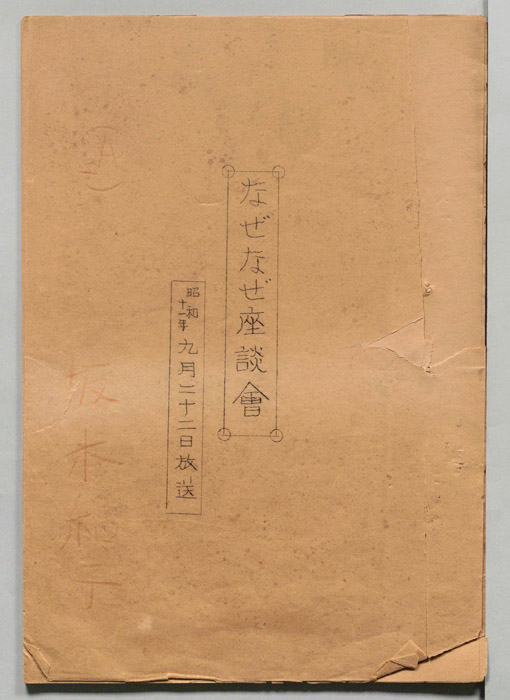 なぜなぜ座談會
昭和
十一年
九月二十二日放送
A
坂本和子